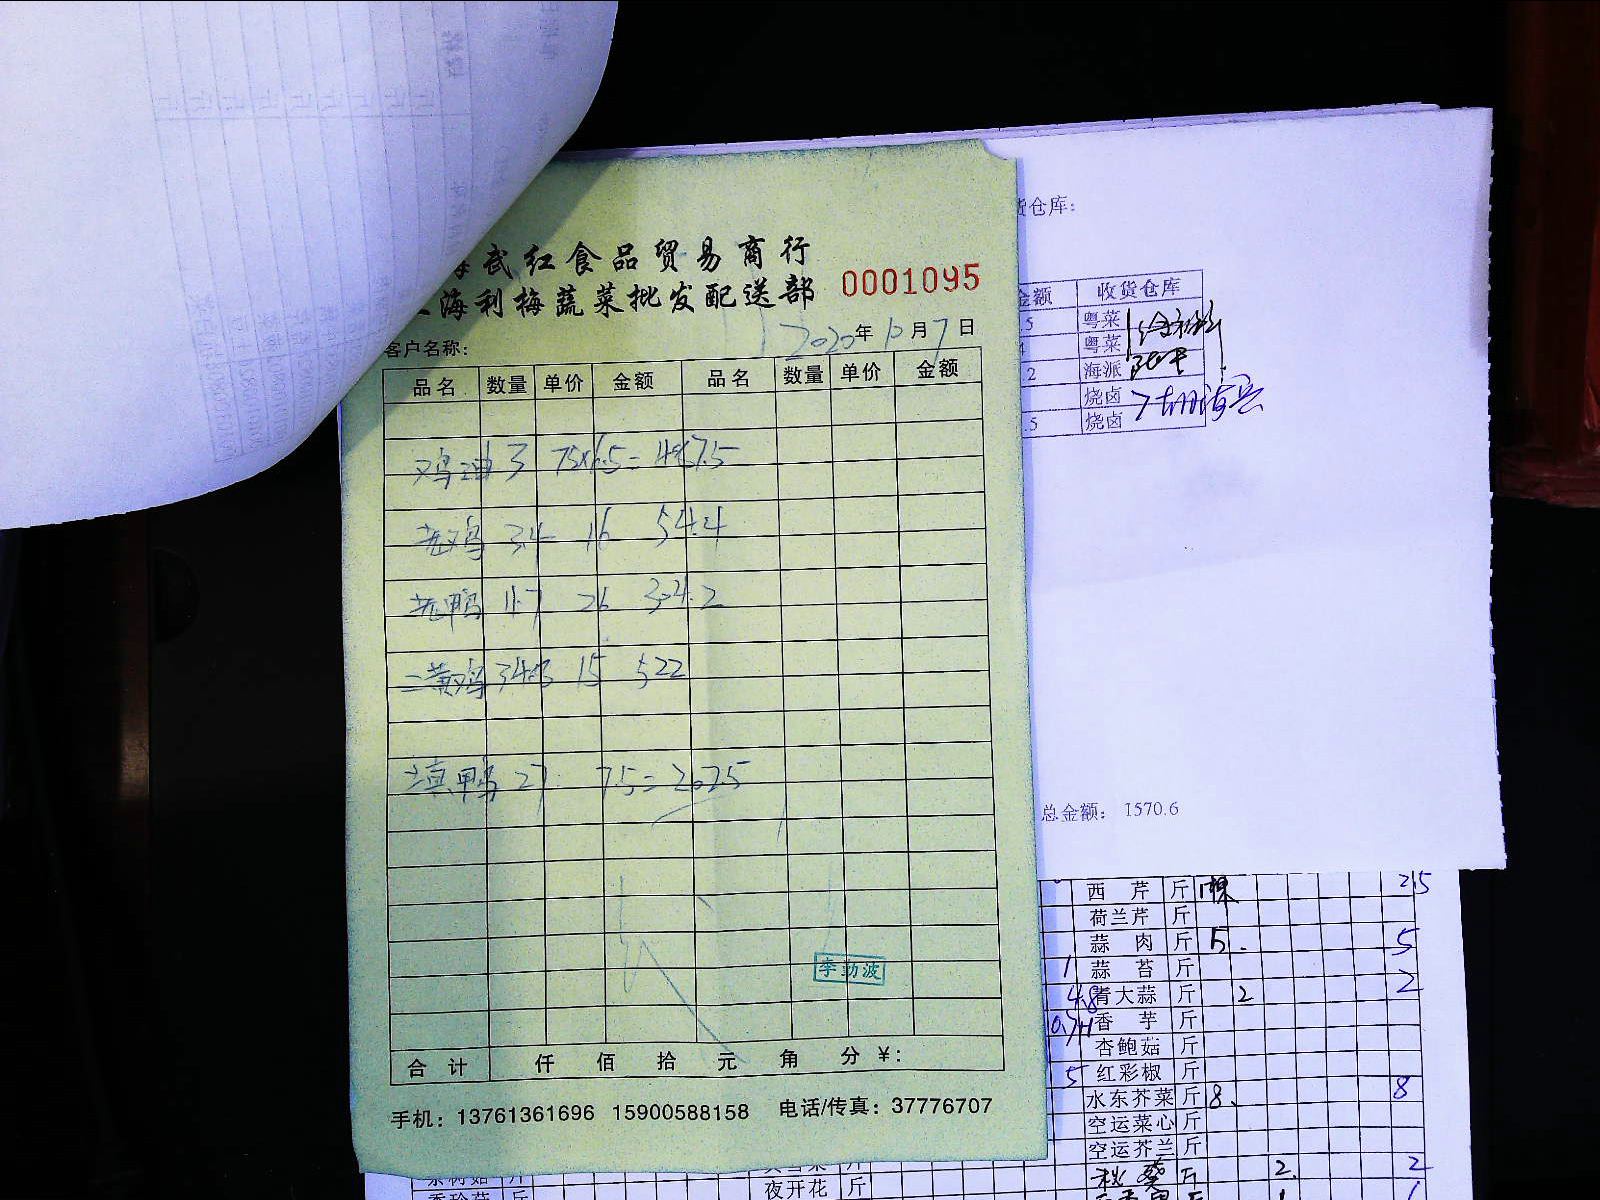 武红食品贸易商行
海利梅蔬菜批发配送部 0001095
2020年10月7日
客户名称:
品名 数量 单价 金额 品名 数量 单价 金额
鸡油 3 75×6.5=487.5
老鸡 3.4 16 54.4
老鸭 11.7 26 304.2
三黄鸡 34.8 15 522
填鸭 27 7.5=202.5
李勤波
合计 仟 佰 拾 元 角 分 ¥:
手机: 13761361696 15900588158 电话/传真: 37776707
货仓库:
金额 收货仓库
5 粤菜
粤菜
.2 海派
烧卤
.5 烧卤
总金额: 1570.6
西芹 斤 25
荷兰芹 斤
蒜肉 斤 5. 5
1 蒜苔 斤
4.8 青大蒜 斤 2 2
香芋 斤
杏鲍菇 斤
5 红彩椒 斤
水东芥菜 斤 8. 8
空运菜心 斤
空运芥兰 斤
秋葵 斤 2. 2
夜开花 斤